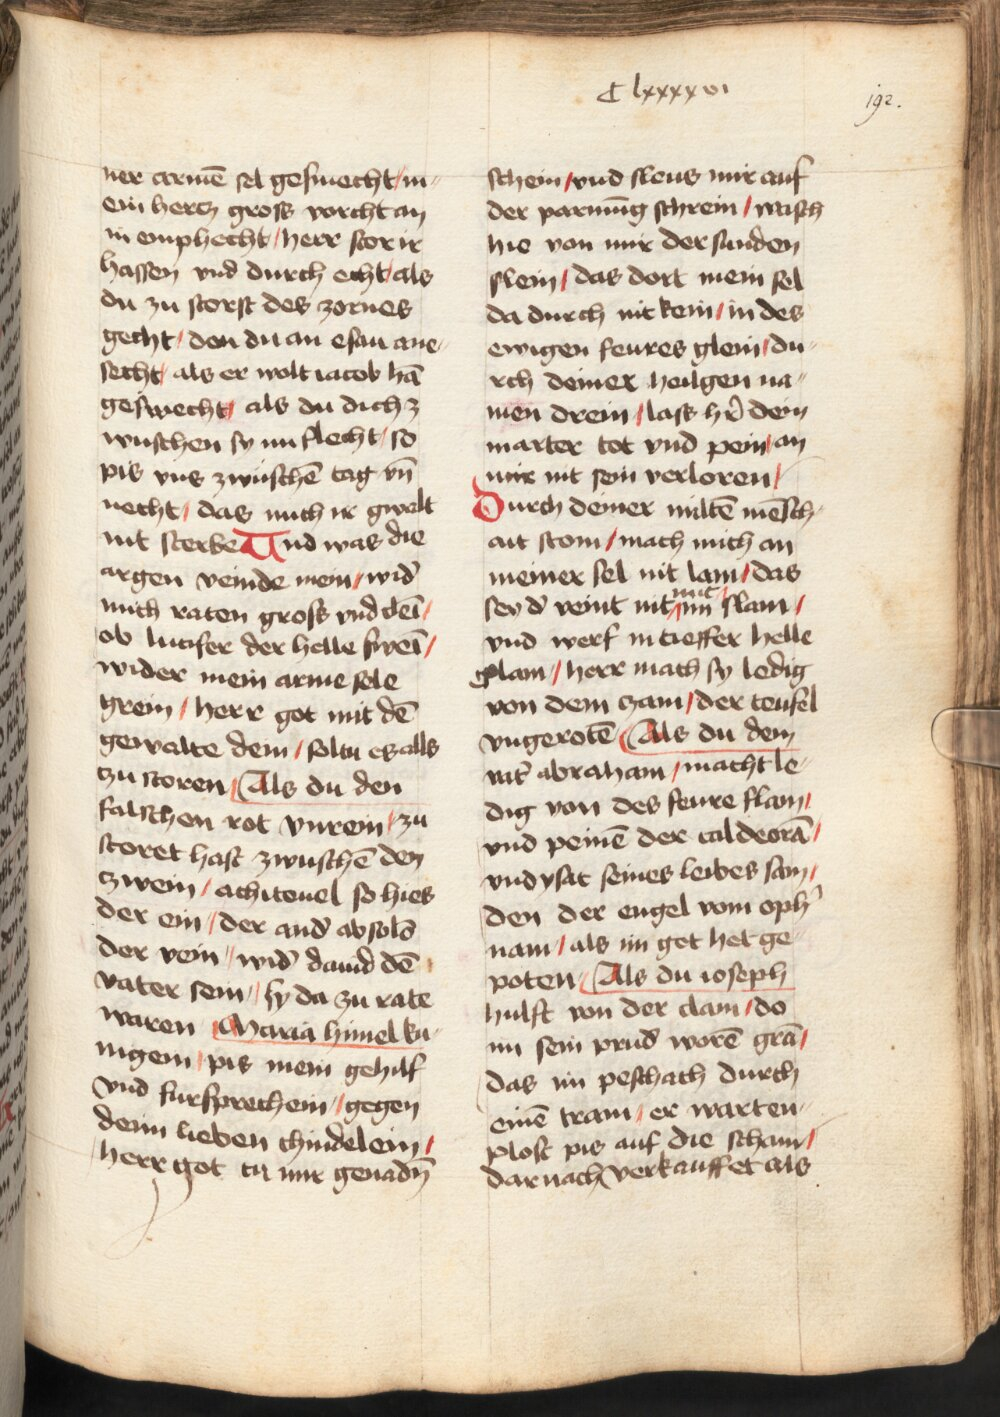 C lxxxxvi
192.
ner armē sel geswecht / m-
ein hercz gross vorcht an
in emphecht / herr stor ir
hassen vnd durch echt / als
du zu storst des zornes
gecht / den du an esau ane-
secht / als er wolt iacob hā
geswecht / als du dich z
wuschen sy im flecht / so
pis vns zwüschē tag vn̄
necht / das mich ir gwalt
nit sterbe Vnd was die
argen veinde mein / wid̄
mich raten gross vnd clei /
ob lucifer der helle swei /
wider mein arme sele
grein / herr got mit dē
gewalte dein / soltu es alls
czu storen / Als du den
falschen rot vnrein / zu
storet hast zwuschē den
czwein / achiteuel so hies
der ein / der and̄ absolō
der vein / wid̄ dauid dē
vater sein / sy da zu rate
waren Maria himel ku-
nigein / pis mein gehilf
vnd fursprechein / gegen
deim lieben chindelein /
herr got tu mir genadn̄
schein / vnd sleus mir auf
der parmūg schrein / wasch
hie von mir der sunden
slein / das dort mein sel
da durch nit kein / in des
ewigen feures glein / du-
rch deiner heilgen na-
men drein / lass hr̄ dein
marter tot vnd pein / an
mir nit sein verloren /
Durch deiner miltē mēsch-
ait stom / mach mich an
meiner sel nit lam / das
sey d̄ veint nit mit im slam /
vnd werf in tieffer helle
glam / herr mach sy ledig
von dem czam / der teufel
vngerotē / Als du dem
vat̄ abraham / macht le-
dig von des feure flam /
vnd peinē der caldeorā /
vnd ysac seines leibes sam /
den der engel vom oph̄
nam / als im got het ge-
poten / Als du ioseph
hulft von der clam / do
im sein prud̄ worē grā /
das im peschach durch
einē tram / er warten-
plost pis auf die scham /
darnach verkauffet als